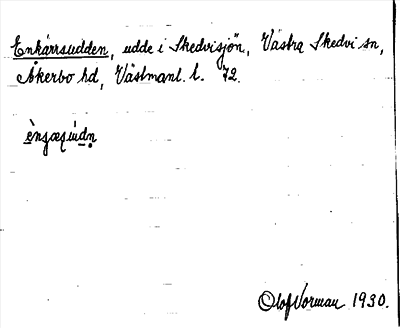 Enkärrsudden, udde i Skedvisjön, Västra Skedvi sn,
Åkerbo hd, Västmanl. l. 72.
Olof Vorman 1930.